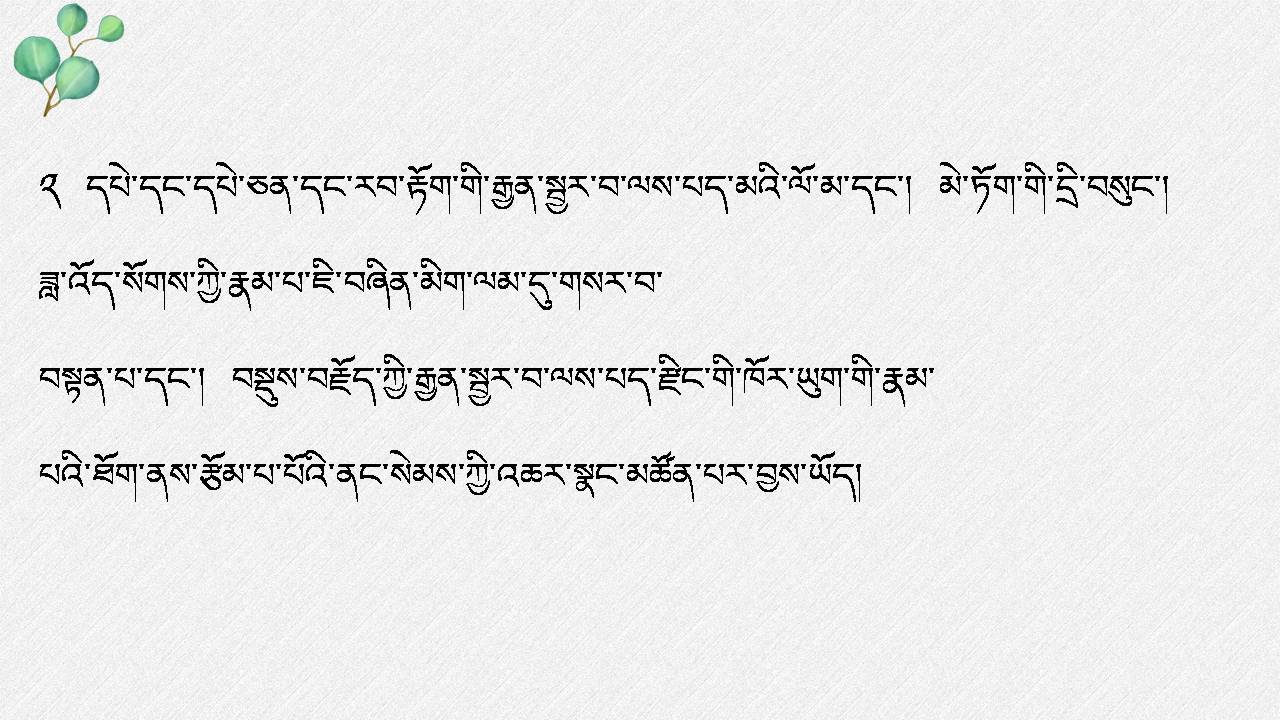 ༢ དཔེ་དང་དཔེ་ཅན་དང་རབ་རྟོག་གི་རྒྱན་སྦྱར་བ་ལས་པད་མའི་ལོ་མ་དང་། མེ་ཏོག་གི་དྲི་བསུང་།
ཟླ་འོད་སོགས་ཀྱི་རྣམ་པ་ཇི་བཞིན་མིག་ལམ་དུ་གསར་བ་
བསྟན་པ་དང་། བསྡུས་བརྗོད་ཀྱི་རྒྱན་སྦྱར་བ་ལས་པད་རྫིང་གི་ཁོར་ཡུག་གི་རྣམ་
པའི་ཐོག་ནས་རྩོམ་པ་པོའི་ནང་སེམས་ཀྱི་འཆར་སྣང་མཚོན་པར་བྱས་ཡོད།